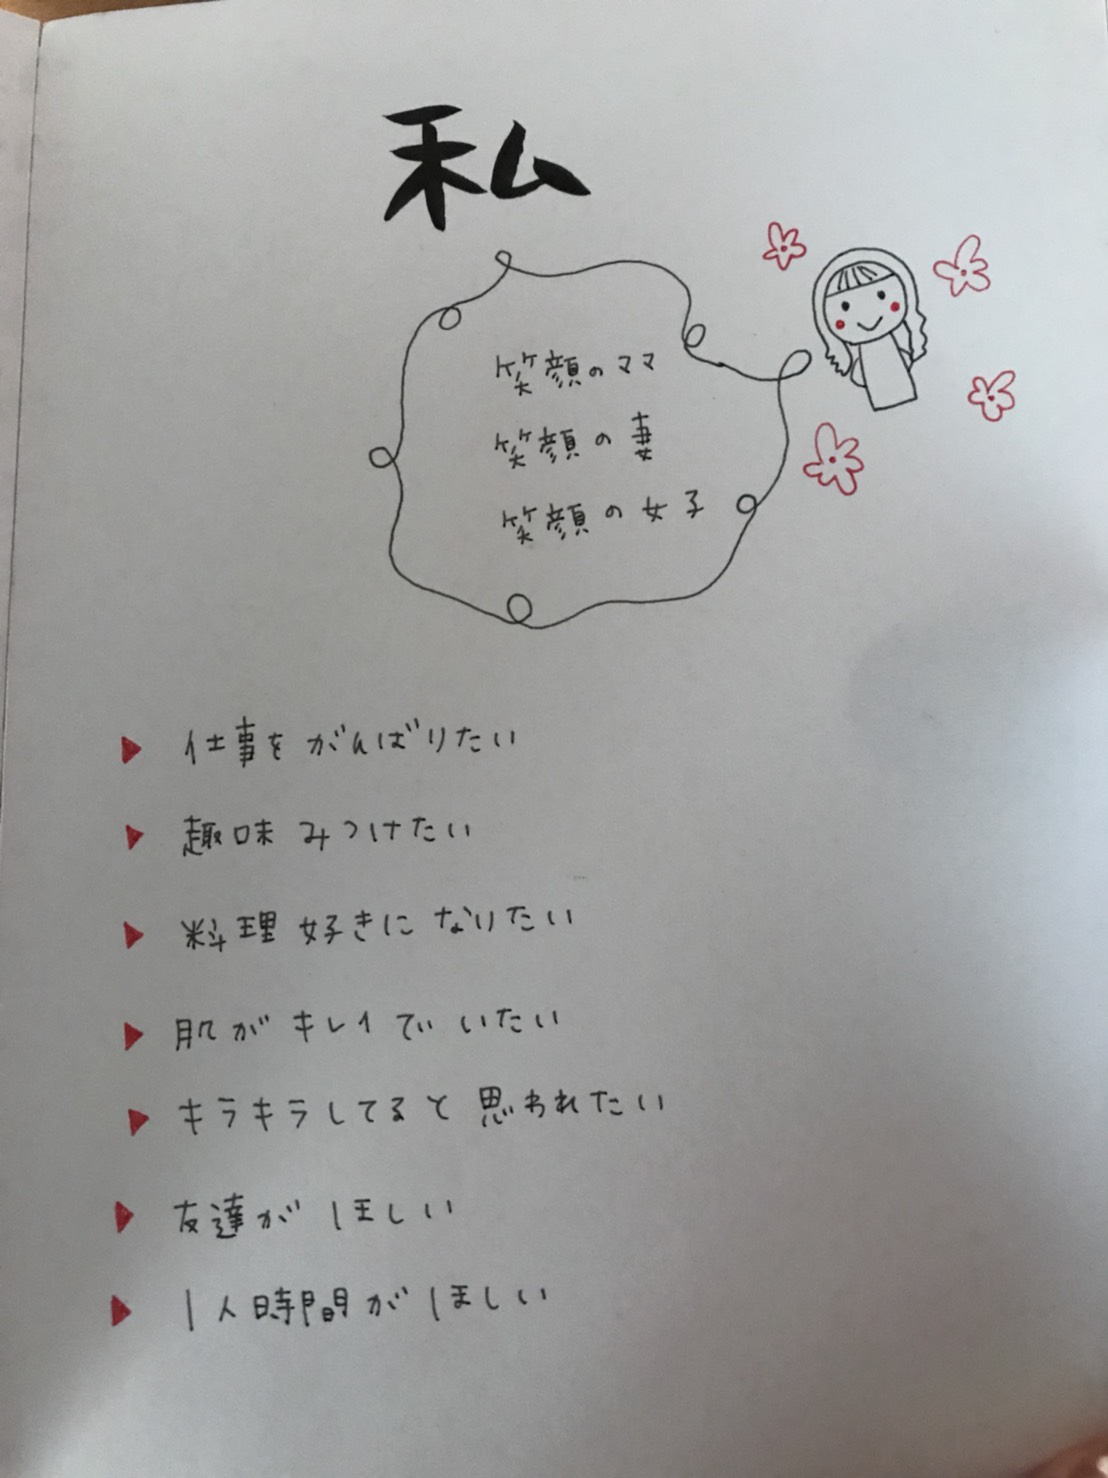 私
笑顔のママ
笑顔の妻
笑顔の女子
仕事をがんばりたい
趣味みつけたい
料理好きになりたい
肌がキレイでいたい
キラキラしてると思われたい
友達がほしい
1人時間がほしい